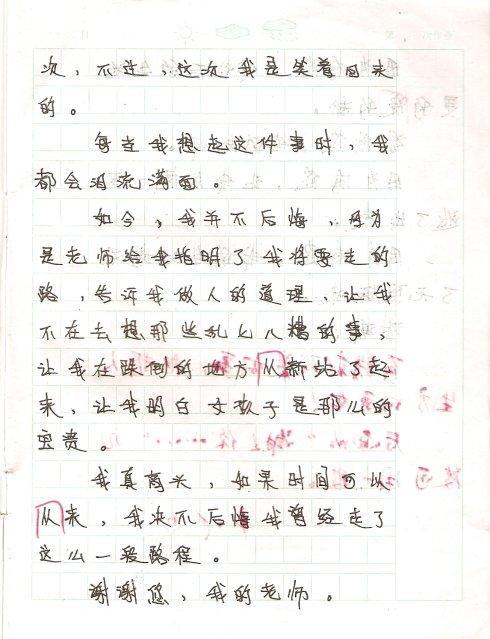 次，不过，这次我是笑着回来
的。
每当我想起这件事时，我
都会泪流满面。
如今，我并不后悔，因为
是老师给我指明了我将要走的
路，告诉我做人的道理，让我
不在去想那些乱七八糟的事，
让我在跌倒的地方从新站了起
来，让我明白女孩子是那么的
宝贵。
我真高兴，如果时间可以
从来，我决不后悔我曾经走了
这么一段路程。
谢谢您，我的老师。